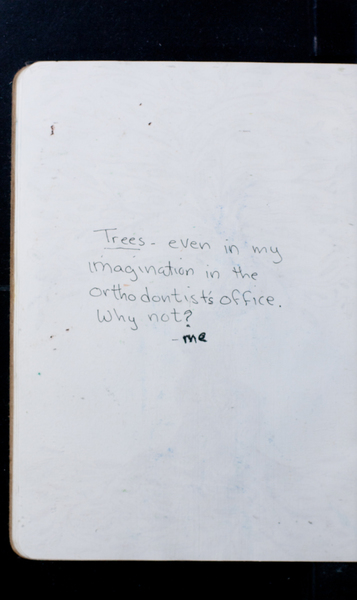 Trees - even in my
imagination in the
orthodontist's office.
Why not?
- me